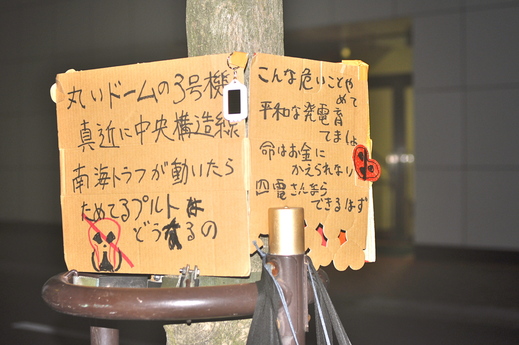 丸いドームの3号機
真近に中央構造線
南海トラフが動いたら
ためてるプルトは
どうなるの
こんな危いことや
めて
平和な発電育
てましょ
命はお金に
かえられない
四電さんなら
できるはず